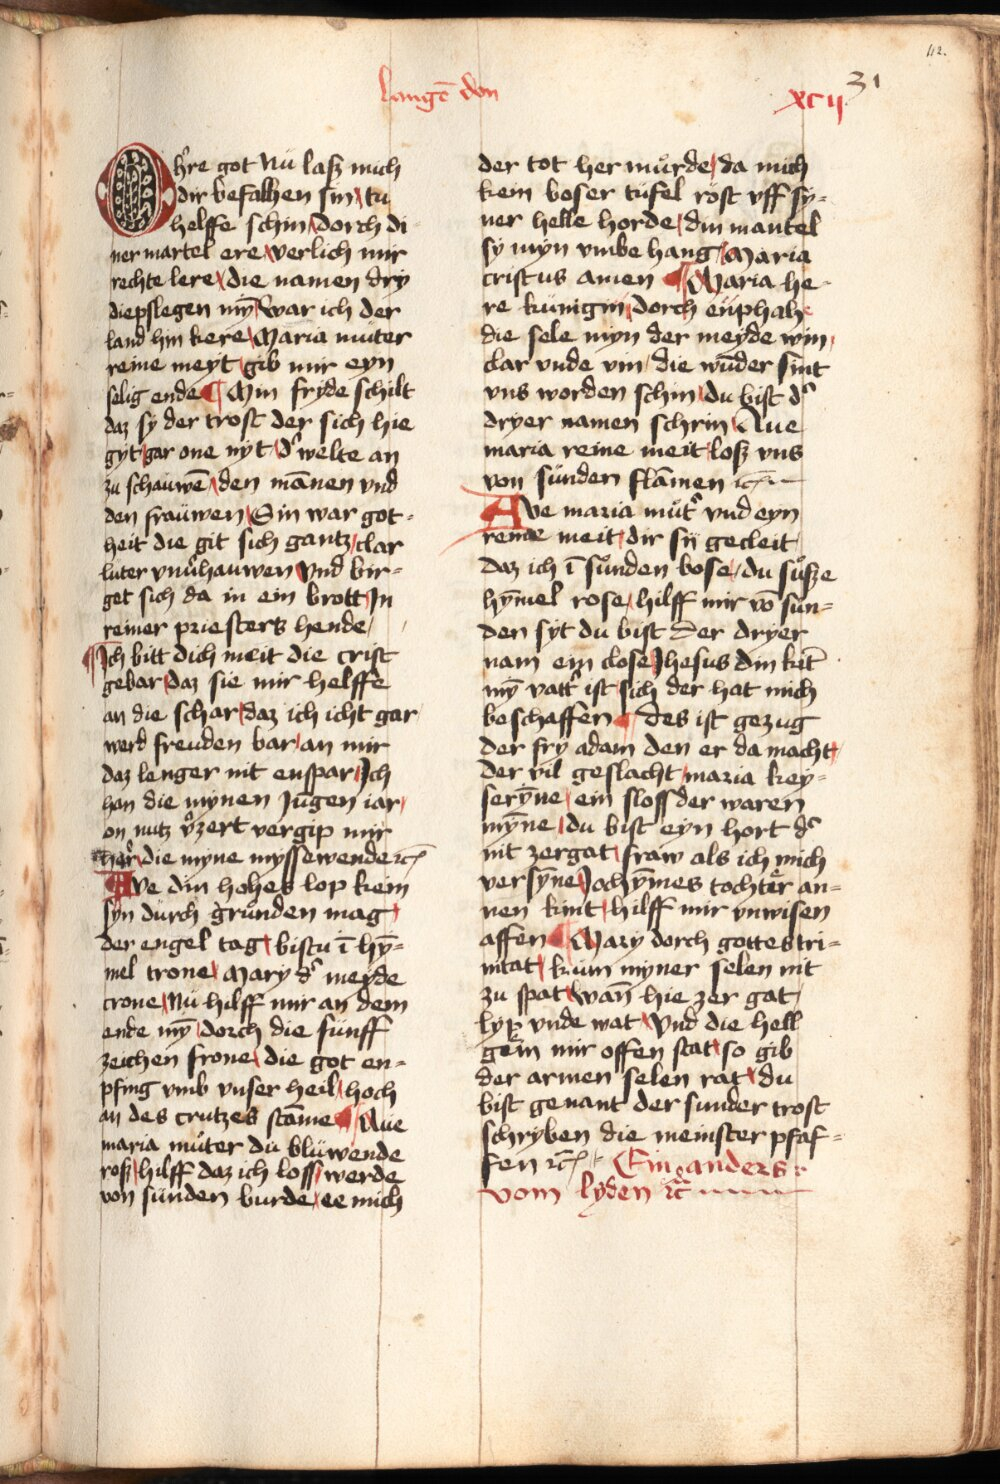 42.
31
Langē don
xcij
O h̾re got Nü lasz mich
dir befalhen sin / tu
helffe schin / dorch di
ner martel ere / verlich mir
rechte lere / die namen dry
die pflegen mȳ / war ich der
land hin kere / Maria muter
reine meyt / gib mir eyn
selig ende ¶ Min fryde schilt
daz sy der trost der sich hie
gyt / gar one nyt / d̾ welte an
zu schauwē / den mānen vnd
den fraüwen / Sin war got-
heit die git sich gantz / clar
luter vnu̾hauwen / Vnd bir-
get sich da in ein brott / In
reiner priesters hende /
¶ Ich bitt dich meit die crist
gebar / daz sie mir helffe
an die schar / daz ich icht gar
werd freuden bar / an mir
daz lenger nit enspar / Ich
han die mynen Jungen iar /
on nutz v̾zert vergip mir
her̾ / die myne myssewende ꝛc̄
Ave din hohes lop kein
syn durch gründen mag /
der engel tag / bistu ī hȳ-
mel trone / Mary d̾ meyde
crone / Nü hilff mir an dem
ende mȳ / dorch die fünff
zeichen frone / die got en-
pfing vmb vnser heil / hoch
an des crutzes stāme ¶ Aue
maria muter du blüwende
rosz / hilff daz ich losz / werde
von sünden burde / ee mich
der tot her mürde / da mich
kein boser tüfel röst vff sy-
ner helle horde / din mantel
sy myn vmbe hang / Maria
cristus amen ¶ Maria he-
re künigin / dorch eüphahe
die sele myn der meyde win /
clar vnde vin / die wūder sint
vns worden schin / du bist d̾
dryer namen schrin / Aue
maria reine meit / losz vns
von sünden flāmen ꝛc̄
Ave maria müt̾ vnd eyn
reine meit / dir sij gecleit /
daz ich ī sünden bose / du süsze
hȳmel rose / hilff mir vō sün-
den syt du bist der dryer
nam ein close / Jhesus din kīt
mȳ vatt̾ ist / sich der hat mich
beschaffen ¶ des ist gezug
der fry adam den er da macht /
der vil geslacht / maria key-
serȳne / ein sloss der waren
mȳne / du bist eyn hort d̾
nit zergat / fraw als ich mich
versȳne / Jochȳmes tochter an-
nen kint / hilff mir vnwisen
affen ¶ Mary dorch gottes tri-
nitat / küm myner selen nit
zu spat / wan̄ hie zer gat /
lyp vnde wat / Vnd die hell
gein mir offen stat / so gib
der armen selen rat / du
bist genant der sunder trost
schryben die meinster pfaf-
fen ꝛc̄ Ein anders
vom lyden ꝛc̄